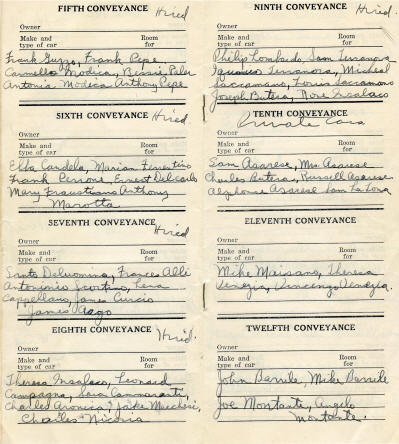 FIFTH CONVEYANCE Hired
Owner
Make and type of car Room for
Frank Guzzo, Frank Pepe
Carmella Modica, Bessie Pala
Antonia Modica Anthony Pepe
SIXTH CONVEYANCE Hired
Owner
Make and type of car Room for
Etta Cardela, Marian Fiorentino
Frank Perrone, Ernest Delcarlo
Mary Anthony
Marotta
SEVENTH CONVEYANCE Hired
Owner
Make and type of car Room for
Santo Frances Alli
Antonino Scortino, Lena
Cappellano, James Curcio
James
EIGHTH CONVEYANCE Hired.
Owner
Make and type of car Room for
Theresa Insalaco, Leonard
Campagna, Sara Cammarati,
Charles Aronica, Jake
Charles Nicosia
NINTH CONVEYANCE Hired.
Owner
Make and type of car Room for
Philip Lombardo, Sam Terranova
Terranova, Micheal
Sacramano, Sacramano
Joseph Butera, Rose Insalaco
TENTH CONVEYANCE
Private Cars
Owner
Make and type of car Room for
Sam Asarese, Mrs Asarese
Charles Butera, Russell Asarese
Alphonse Asarese Sam La
ELEVENTH CONVEYANCE
Owner
Make and type of car Room for
Mike Maisano, Theresa
Venezia, Vincenzo Venezia.
TWELFTH CONVEYANCE
Owner
Make and type of car Room for
John Barrile, Mike Barrile
Joe Montante, Angelo
Montante.